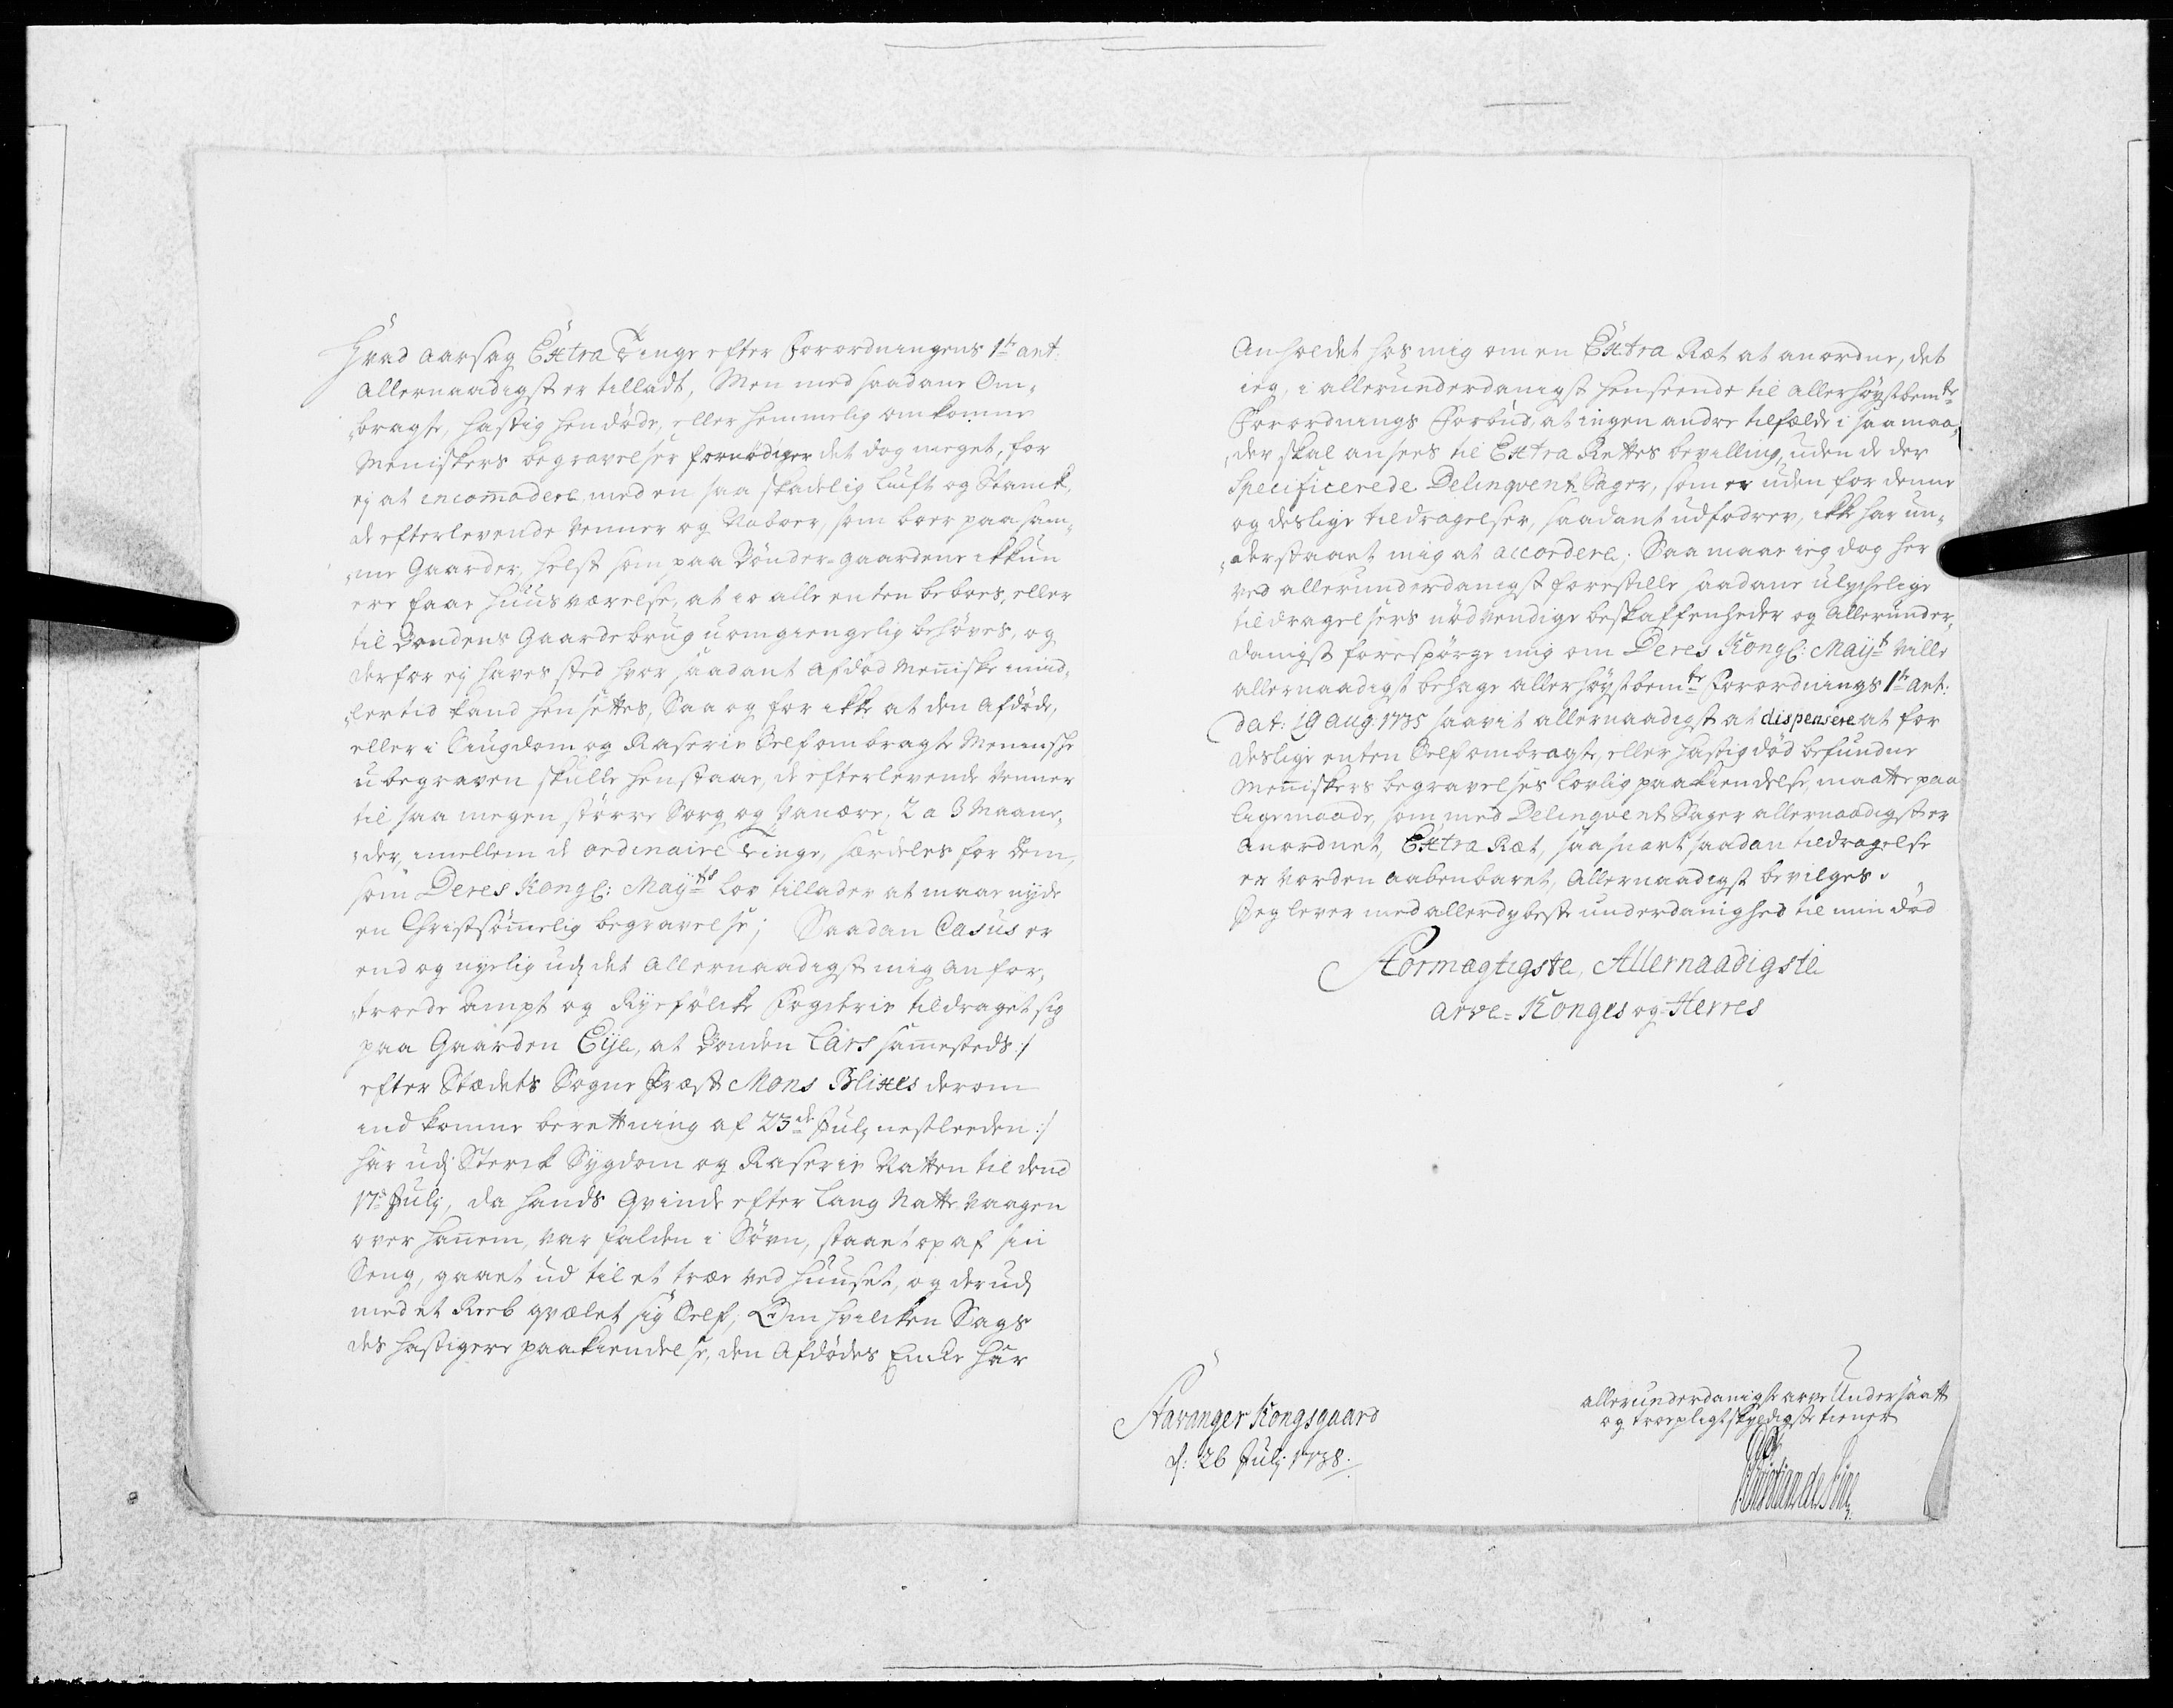 Hvad aarsag Extra Tinge efter Forordningens 1te art:
Allernaadigst er tilladt, Men med saadane Om-
-bragte, hastig hendøde, eller hemmelig omkomne
Meniskers begravelser fornødiges det dog meget, for
ej at incomodere med en saa skadelig Luft og Stanck,
de efterlevende Venner og Naboer, som boer paa sam-
-me Gaarder, helst som paa Bønder-gaardene ickun
ere faae Huus værelse, at io alle enten beboes, eller
til Bondens Gaardebrug uomgiengelig behøves, og
derfor ej haves sted hvor saadant afdød Meniske imid-
-lertid kand hensettes, Saa og for ikke at den Afdøde,
eller i Siugdom og Raserie Self ombragte Menniske
ubegraven skulle henstaae, de efterlevende Venner
til saa megen større Sorg og Vanære, 2 a 3 Maane-
-der, imellem de ordinaire Tinge, særdeles for dem,
som Deres Kongl: Mayts Lov tillader at maae nyde
en Christsømelig begravelse; Saadan Casus er
end og nyelig udj det Allernaadigst mig anfor-
-troede Ampt og Ryefølcke Fogderie tildraget sig
paa Gaarden Eije, at Bonden Lars sammesteds :/
efter Stædets Sogne Præst Mons Blixes derom
indkomne berettning af 23de Julj nestleeden :/
har udj Sterck Sygdom og Raserie Natten til dend
17de Julj, da hands Qvinde efter lang Natte Vaagen
over hannem, var falden i Søvn, staaet op af sin
Seng, gaaet ud til et træe ved Huuset, og derudj
med et Reeb qvælet sig Self; Om hvilcken Sags
des hastigere paakiendelse, den Afdødes Encke har
Anholdet hos mig om en Extra Ræt at anordne, det
ieg, i allerunderdanigst henseende til allerhøystbemte
Forordnings Forbud, at ingen andre tilfælde i saa maa-
-der skal ansees til Extra Rettes bevilling, uden de der
Specificerede Delinqvent Sager, som er uden for denne
og deslige tildragelser, saadant udfodrer, ikke har un-
-derstaaet mig at accordere; Saa maae ieg dog her
ved allerunderdanigst forestille saadane ulychelige
tildragelsers nødvendige beskaffenheder og Allerunder-
danigst forespørge mig om Deres Kongl: Mayt Ville
allernaadigst behage allerhøystbemte Forordnings 1te art:
dat: 19 aug: 1735 saavit allernaadigst at dispensere at for
deslige enten Self ombragte, eller hastig død befundne
Menniskers begravelses lovlig paakiendelse, maatte paa
lige maade, som med Delinqvent Sager allernaadigst er
Anordnet, Extra Ræt, saa snart saadan tildragelse
er vorden aabenbaret, Allernaadigst bevilges.
Jeg lever med allerdybeste underdanighed til min død
Stormægtigste, Allernaadigste
Arve-Konges og Herres
Stavanger Kongsgaard
d: 26 Julj 1738.
allerunderdanigste arve Undersaatt
og troepligtskyldigste tiener
Christian de Fine